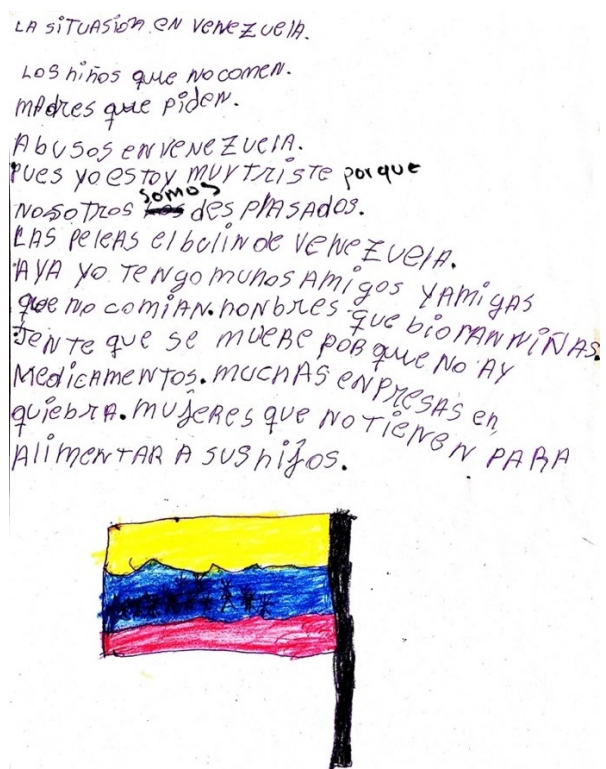 LA SiTUASiON EN VENEZUELA.
LOS niños que no comen.
MAdres que piden.
Abusos EN VENEZUELA.
PUES YO ESTOY MUY TRISTE porque
NOSOTROS somos des PlASADOS.
LAS PELEAS el bulin de VENEZUELA.
AYA YO TENGO munos Amigos Y Amigas
que no comian. honbres que bioran NiÑAS.
JENTE que SE MUERE POR que NO AY
MEDiCAMENTOS. MUCHAS ENPRESAS en
quiebra. mujeres que NO TiENEN PARA
AlimenTAR A SUS hijos.